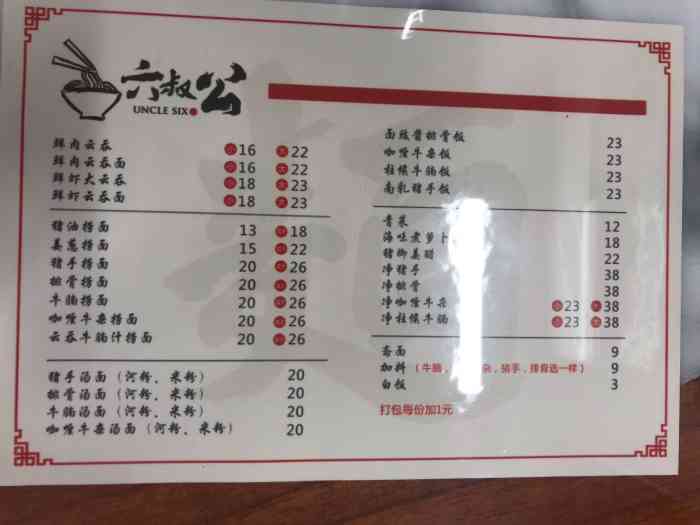 六叔公
UNCLE SIX
鲜肉云吞 小16 大22
鲜肉云吞面 小16 大22
鲜虾大云吞 小18 大23
鲜虾云吞面 小18 大23
猪油捞面 13 大18
姜葱捞面 15 大22
猪手捞面 20 大26
排骨捞面 20 大26
牛腩捞面 20 大26
咖喱牛杂捞面 20 大26
云吞牛腩汁捞面 20 大26
猪手汤面（河粉、米粉） 20
排骨汤面（河粉、米粉） 20
牛腩汤面（河粉、米粉） 20
咖喱牛杂汤面（河粉、米粉） 20
面豉酱排骨饭 23
咖喱牛杂饭 23
柱候牛腩饭 23
南乳猪手饭 23
青菜 12
海味煮萝卜 18
猪脚姜醋 22
净猪手 38
净排骨 38
净咖喱牛杂 小23 大38
净柱候牛腩 小23 大38
斋面 9
加料（牛腩，杂，猪手，排骨选一样） 9
白饭 3
打包每份加1元